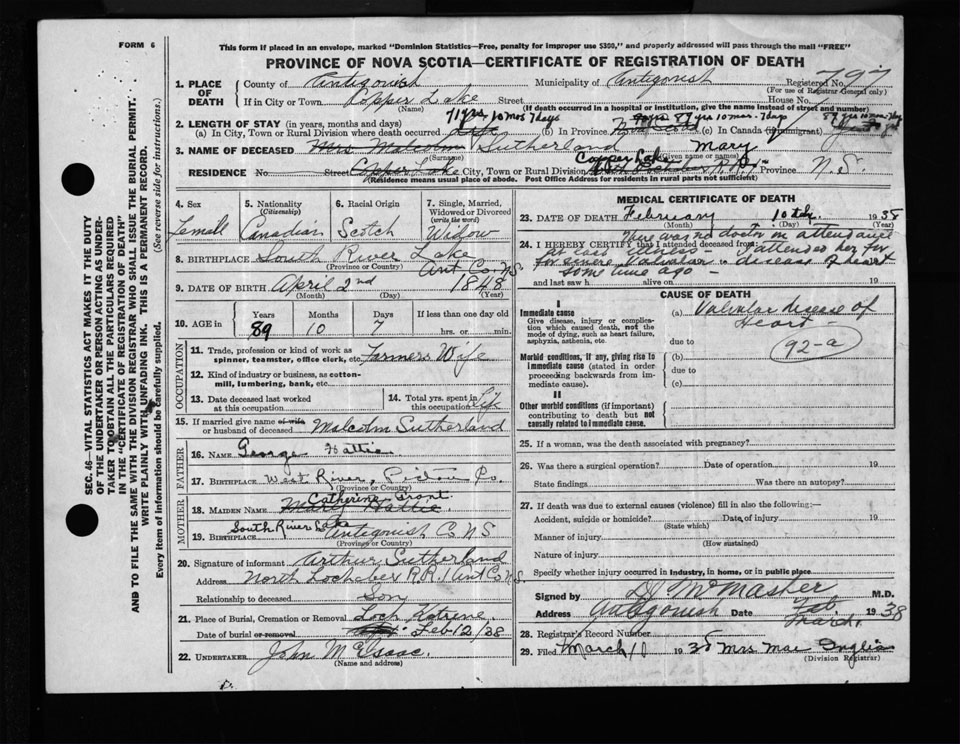 FORM 6
This form if placed in an envelope, marked "Dominion Statistics—Free, penalty for improper use $300," and properly addressed will pass through the mail "FREE"
PROVINCE OF NOVA SCOTIA—CERTIFICATE OF REGISTRATION OF DEATH
1. PLACE OF DEATH County of Antigonish Municipality of Antigonish Registered No. 797
(For use of Registrar General only)
If in City or Town Copper Lake Street House No.
(If death occurred in a hospital or institution, give the name instead of street and number)
2. LENGTH OF STAY (in years, months and days) 71 yrs 10 mos 7 days 89 yrs 10 mos. 7 days
(a) In City, Town or Rural Division where death occurred Life (b) in Province Nova Scotia (c) in Canada (if immigrant)
3. NAME OF DECEASED Mrs Malcolm Sutherland Mary
(Surname) (Given name or names)
RESIDENCE No. Street Copper Lake City, Town or Rural Division Copper Lake Province N.S.
(Residence means usual place of abode. Post Office Address for residents in rural parts not sufficient)
4. Sex Female
5. Nationality (Citizenship) Canadian
6. Racial Origin Scotch
7. Single, Married, Widowed or Divorced (write the word) Widow
8. BIRTHPLACE South River Lake Ant. Co. N.S.
(Province or Country)
9. DATE OF BIRTH April 2nd 1848
(Month) (Day) (Year)
10. AGE in Years 89 Months 10 Days 7 If less than one day old hrs. or min.
OCCUPATION
11. Trade, profession or kind of work as spinner, teamster, office clerk, etc. Farmers Wife
12. Kind of industry or business, as cotton-mill, lumbering, bank, etc.
13. Date deceased last worked at this occupation
14. Total yrs. spent in this occupation Life
15. If married give name of wife or husband of deceased Malcolm Sutherland
FATHER
16. NAME George Hattie
17. BIRTHPLACE West River, Pictou Co.
(Province or Country)
MOTHER
18. MAIDEN NAME Catherine Grant Mary Hattie
19. BIRTHPLACE South River Lake Antigonish Co NS
(Province or Country)
20. Signature of informant Arthur Sutherland
Address North Lochaber R.R.1 Ant Co N.S.
Relationship to deceased Son
21. Place of Burial, Cremation or Removal Loch Katrine
Date of burial or removal Feb 12/38
22. UNDERTAKER John McIsaac.
(Name and address)
MEDICAL CERTIFICATE OF DEATH
23. DATE OF DEATH February 10th 1938
(Month) (Day) (Year)
24. I HEREBY CERTIFY that I attended deceased from There was no doctor in attendance
in last illness — attended her for
for severe valvular — disease of heart
some time ago —
and last saw h alive on 19
CAUSE OF DEATH
I
Immediate cause
Give disease, injury or complication which caused death, not the mode of dying, such as heart failure, asphyxia, asthenia, etc.
(a) Valvular disease of Heart
due to
92-a
Morbid conditions, if any, giving rise to immediate cause (stated in order proceeding backwards from immediate cause).
(b)
due to
(c)
II
Other morbid conditions (if important) contributing to death but not causally related to immediate cause.
25. If a woman, was the death associated with pregnancy?
26. Was there a surgical operation? Date of operation 19
State findings Was there an autopsy?
27. If death was due to external causes (violence) fill in also the following:—
Accident, suicide or homicide? Date of injury 19
(State which)
Manner of injury
(How sustained)
Nature of injury
Specify whether injury occurred in industry, in home, or in public place
Signed by McMaster M.D.
Address Antigonish Date Feb. March. 1938
28. Registrar's Record Number
29. Filed March 10 1938 Mrs Mae Inglis
(Division Registrar)
SEC. 46—VITAL STATISTICS ACT MAKES IT THE DUTY
OF THE UNDERTAKER OR PERSON ACTING AS UNDER-
TAKER TO OBTAIN ALL THE PARTICULARS REQUIRED
IN THE "CERTIFICATE OF REGISTRATION OF DEATH"
AND TO FILE THE SAME WITH THE DIVISION REGISTRAR WHO SHALL ISSUE THE BURIAL PERMIT.
WRITE PLAINLY WITH UNFADING INK. THIS IS A PERMANENT RECORD.
Every item of information should be carefully supplied. (See reverse side for instructions.)